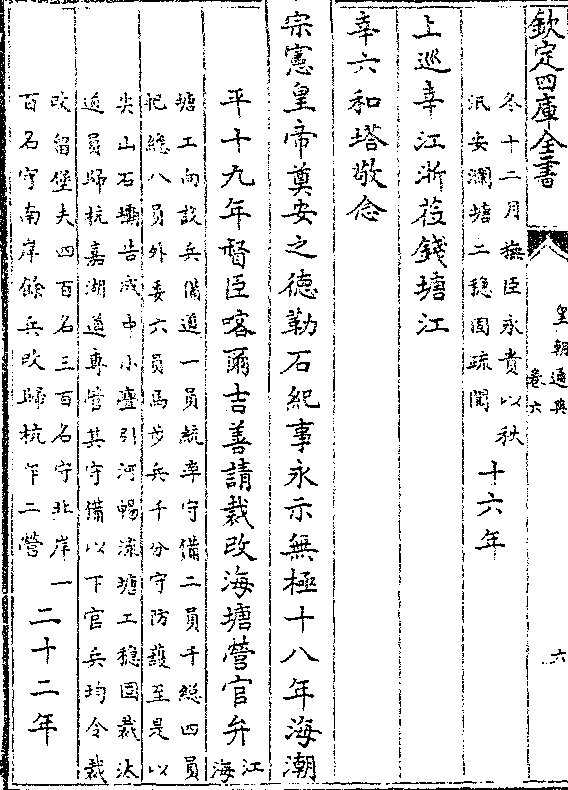 欽定四庫全書
皇朝通典
卷六
六
冬十二月撫臣永貴以秋
汛安瀾塘工穩固疏聞
十六年
上巡幸江浙蒞錢塘江
幸六和塔敬念
宗憲皇帝奠安之德勒石紀事永示無極十八年海潮
平十九年督臣喀爾吉善請裁改海塘營官弁
江
海
塘工向設兵備道一員統率守備二員千總四員
把總八員外委六員馬步兵千分守防護至是以
尖山石壩告成中小亹引河暢流塘工穩固裁汰
道員歸杭嘉湖道專管其守備以下官兵均令裁
改留堡夫四百名三百名守北岸一
百名守南岸餘兵改歸杭乍二營
二十二年